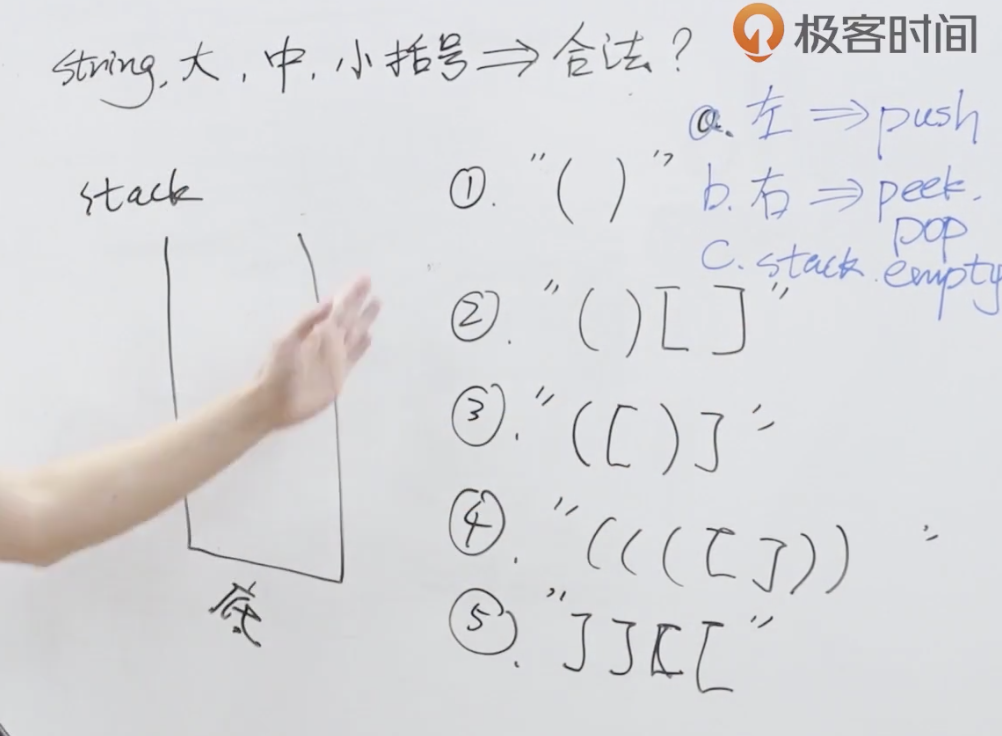 极客时间
string, 大, 中, 小括号 ⇒ 合法?
a. 左 ⇒ push
b. 右 ⇒ peek.
pop
c. stack. empty
stack
底
①. "( )"
②. "( ) [ ]"
③. "( [ ) ]"
④. "( ( ( [ ] ) )"
⑤. "] ] [ ["